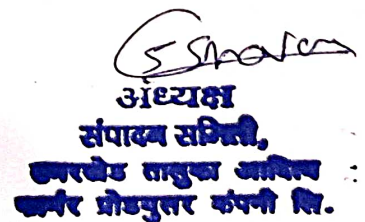 अध्यक्ष
संपादन समिती,
उमरखेड तालुका
फार्मर प्रोड्युसर कंपनी लि.